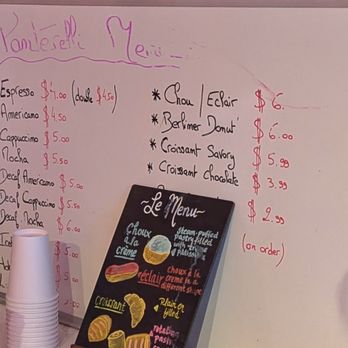 Menu
Espresso $4.00 (double $4.50)
Americano $4.50
Cappuccino $5.00
Mocha $5.50
Decaf Americano $5.00
Decaf Cappuccino $5.50
Decaf Mocha $6.00
* Chou / Eclair $6.
* Berliner Donut $6.00
* Croissant Savory $5.99
* Croissant chocolate $3.99
$2.99
(on order)
~Le Menu~
Choux
à la
crème
steam-puffed
pastry filled
with
éclair
choux à la
crème in a
different shape
croissant
plain or
filled